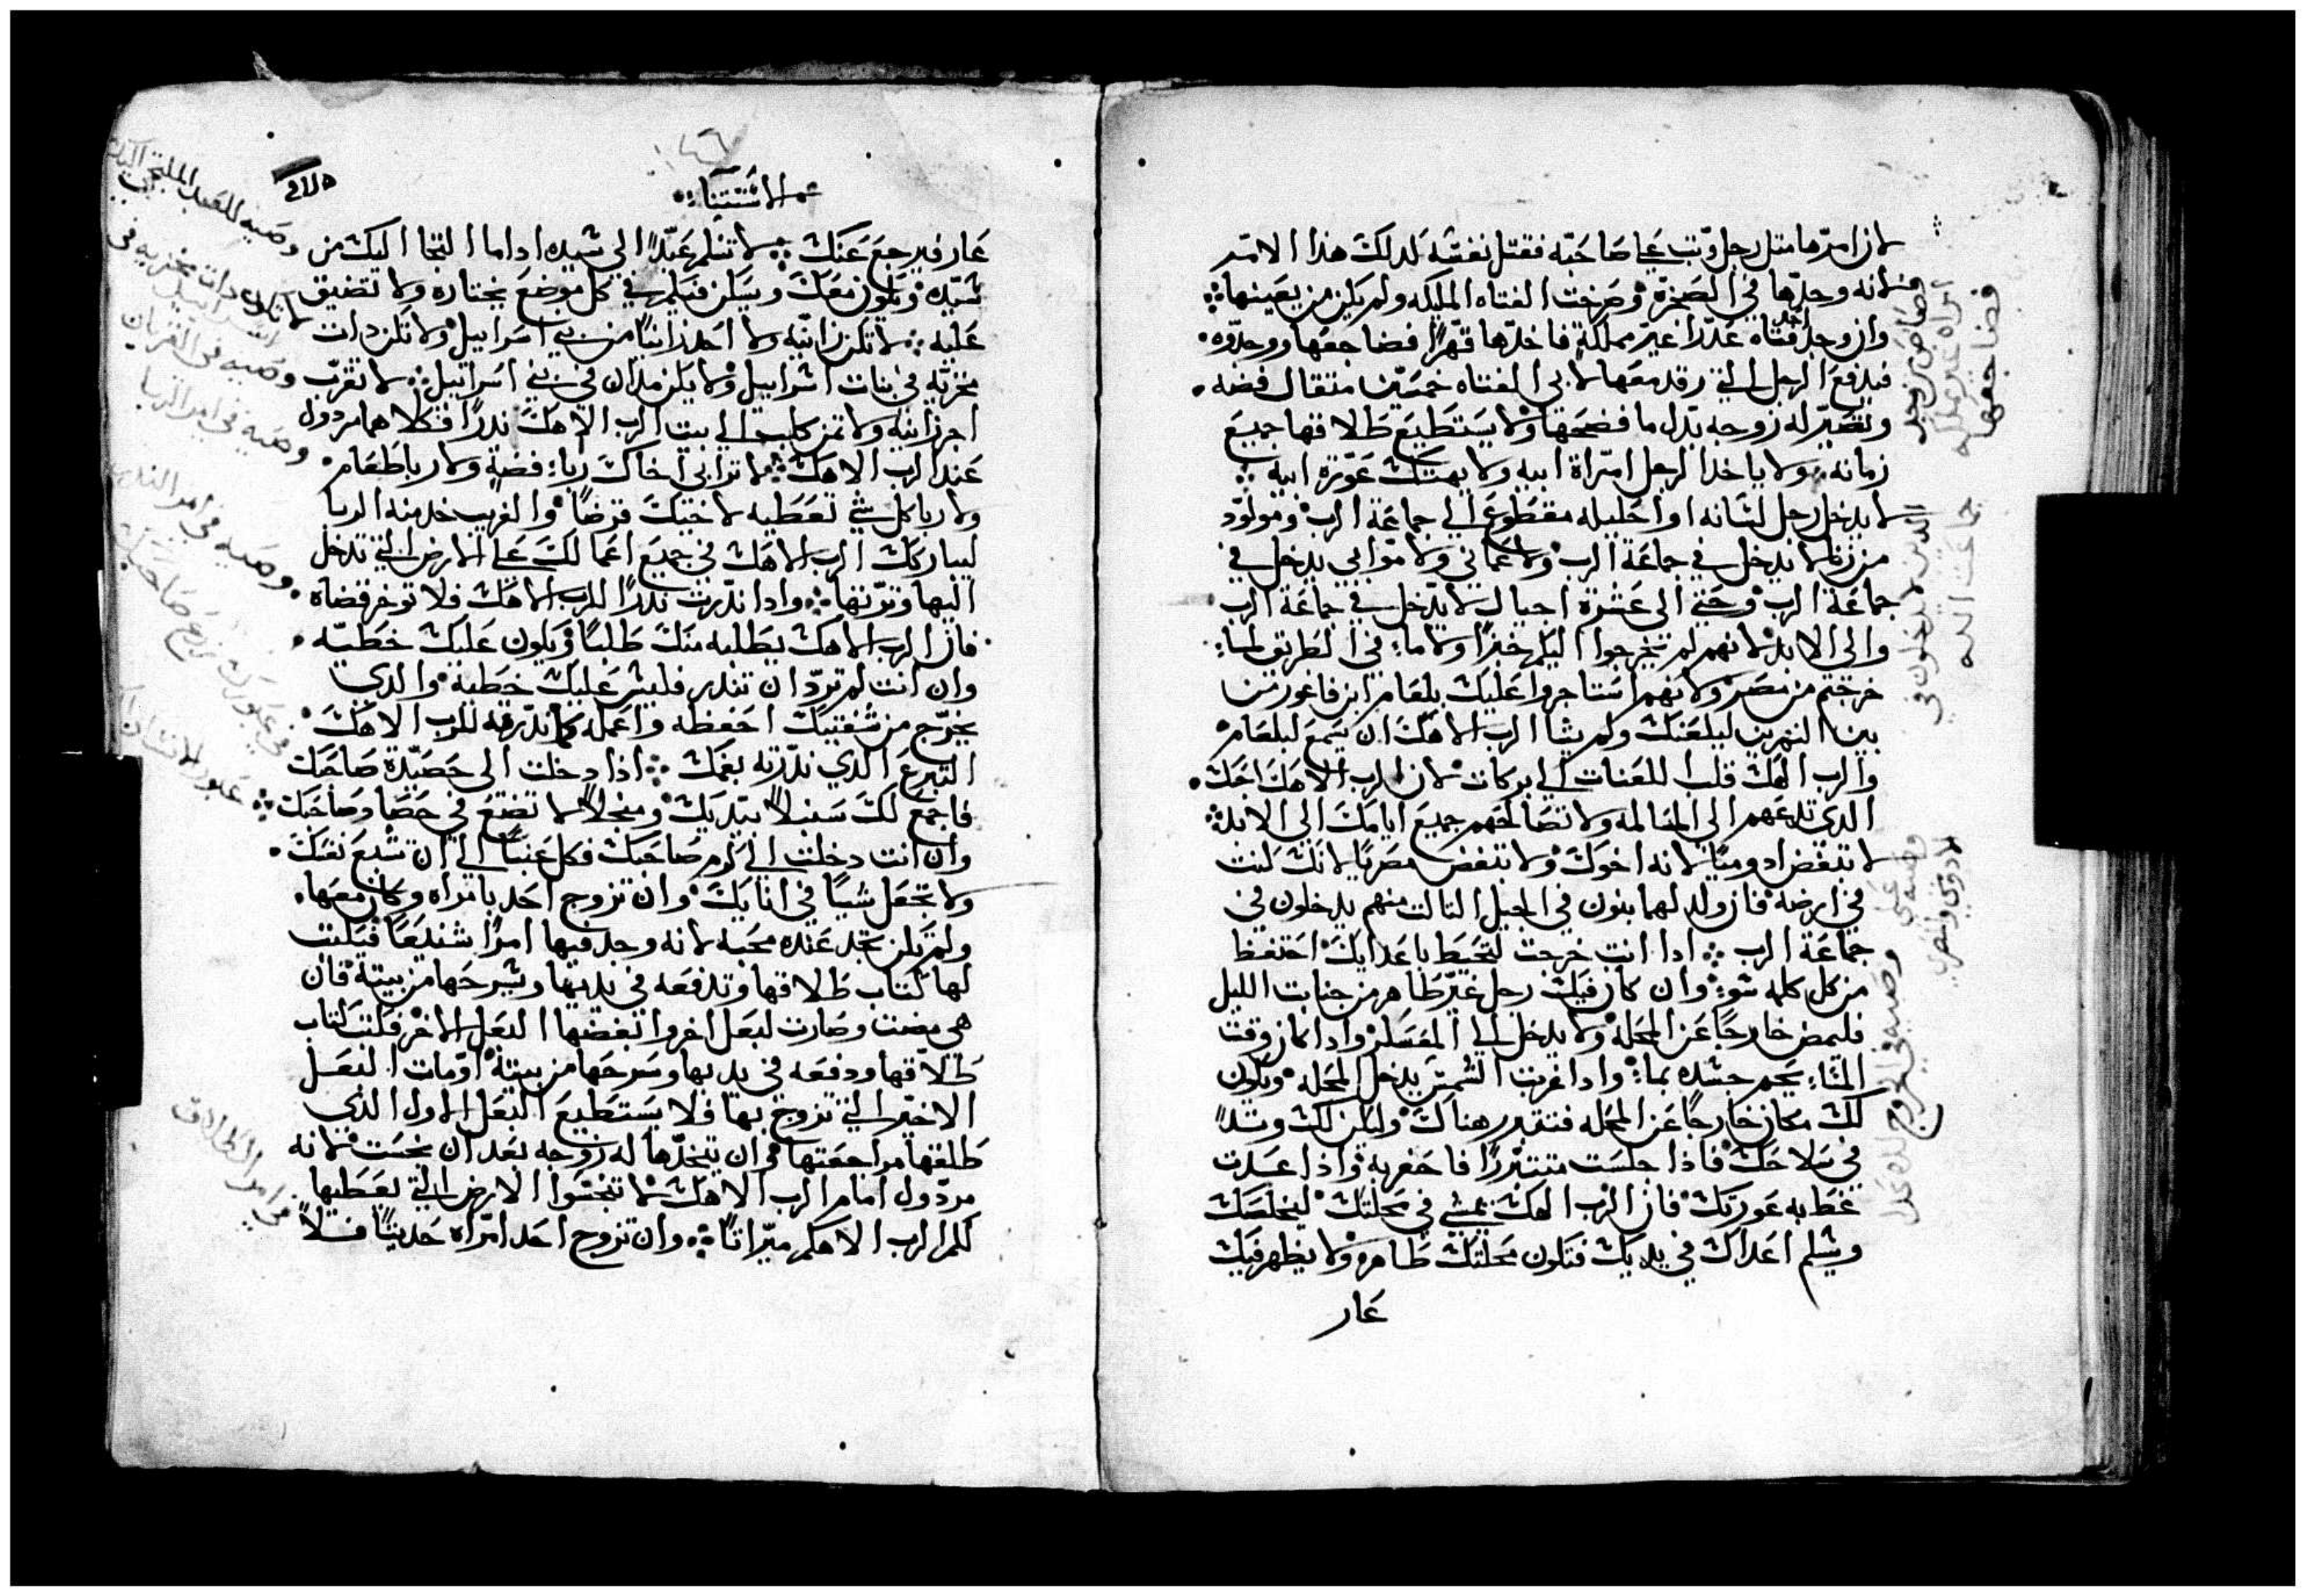 لان امرها مثل رجل وتب علي صاحبه فقتل نفسه كدلك هذا الامر
فلانه وجدها في الصخرة وصرخت الفتاه المليكه ولم يكن من يعينها
وان وجد احد فتاه عدرا غير مملكة فاخدها قهرًا فضاجعها ووجدوه
فيدفع الرجل الدي رقد معها لابي الفتاه خمسين متقال فضه
وتصير له زوجه بدل ما فضحها ولا يستطيع طلاقها جميع
زمانه ولا ياخدا الرجل امراة ابيه ولا يهتك عورة ابيه
لا يدخل رجل لسانه او احليله مقطوع الي جماعة الرب ومولود
من زنا لا يدخل في جماعة الرب ولا عماني ولا موابي يدخل في
جماعة الرب وحتي الى عشرة اجيال لا يدخل في جماعة الرب
والى الابد لانهم لم يخرجوا اليكم خبزًا ولا ماء في الطريق لما
خرجتم من مصر ولانهم استاجروا عليك بلعام ابن فاغور من
بين النهرين ليلعنك ولم يشا الرب الاهك ان يسمع لبلعام
والرب الهك قلب اللعنات الي بركات لان الرب الاهك احبك
الدي تدعهم الى المسالمه ولا تصالحهم جميع ايامك الى الابد
لا تبغض ادوميًا لانه اخوك ولا تبغض مصريًا لانك كنت
في ارضه فان ولد لهما بنون في الجيل التالت منهم يدخلون في
جماعة الرب ادا انت خرجت لتحيط باعدايك احتفظ
من كل كلمه سوء وان كان فيك رجل غير طاهر من جنابت الليل
فليمض خارجًا عن المحله ولا يدخل الي المعسكر وادا كان وقت
المساء يحم جسده بماء وادا غربت الشمس يدخل المحله ويكون
لك مكان خارجًا عن المحله فتتقدر هناك وليكن لك وتدًا
في سلاحك فاذا جلست متبررًا فاحفر به واذا عدت
غط به عورتك فان الرب الهك يمشي في محلتك ليخلصك
ويسلم اعداك في يديك فتكون محلتك طاهره ولا يظهر فيك
عار
قصاص من وجد
امراه غير مملكه
فضاجعها
الدين لا يدخلون في
جماعت الله
وصيه علي
الادومي والمصري
وصيه في الخروج
١٤٦
الاستتنا
عار فيرجع عنك لا تسلم عبدًا الى سيده اداما التجا اليك من
سيده ويكون معك ويسكن فيكم في كل موضع يختاره ولا تضيق
عليه لا تكن زانيه ولا احد زانيًا من بني اسراييل ولا تكن دات
مخزيه في بنات اسراييل ولا يكن مدان في بني اسراييل لا تقرب
اجر زانيه ولا تمن كلب الي بيت الرب الاهك ندرًا فكلاهما مردول
عند الرب الاهك لا ترابي اخاك رباء فضة ولا ربا طعام
ولا ربا كل شي تعطيه لاخيك قرضًا والغريب خد منه الربا
ليباركك الرب الاهك في جميع اعمالك علي الارض التي تدخل
اليها وترتها وادا ندرت ندرًا للرب الاهك فلا توخر قضاه
فان الرب الاهك يطلبه منك طلبًا ويكون عليك خطيه
وان انت لم ترد ان تندر فليس عليك خطية والدي
يخرج من شفتيك احفظه واعمله كما ندرته للرب الاهك
التبرع الدي ندرته بفمك اذا دخلت الى حصيدة صاحبك
فاجمع لك سنبلًا بيديك ومنجلًا لا تضع في حصاد صاحبك
وان انت دخلت الي كرم صاحبك فكل عنبًا الي ان تشبع نفسك
ولا تجعل شيًا في انايك وان تزوج احد بامراه وكان معها
ولم يكن تجد عنده محبه لانه وجد فيها امرًا شنيعًا فيكتب
لها كتاب طلاقها وتدفعه في يديها ويسرحها من بيته فان
هي مضت وصارت لبعل اخر وابغضها البعل الاخر فكتب كتاب
طلاقها ودفعه في يديها وسرحها من بيته او مات البعل
الاخير الدي تزوج بها فلا يستطيع البعل الاول الذي
طلقها مراجعتها ان يتخدها له زوجه بعد ان نجست لانه
مردول امام الرب الاهك لا تنجسوا الارض التي يعطيها
لكم الرب الاهكم ميراتًا وان تزوج احد امراه حديثًا فلا
وصيه للعبد الملتجي اليك
لا تكن دات مخزيه في
اسراييل
وصيه في القربان
وصيه في امر الربا
وصيه في امر الندر
في عبورك زرع صاحبك
في امر الطلاق